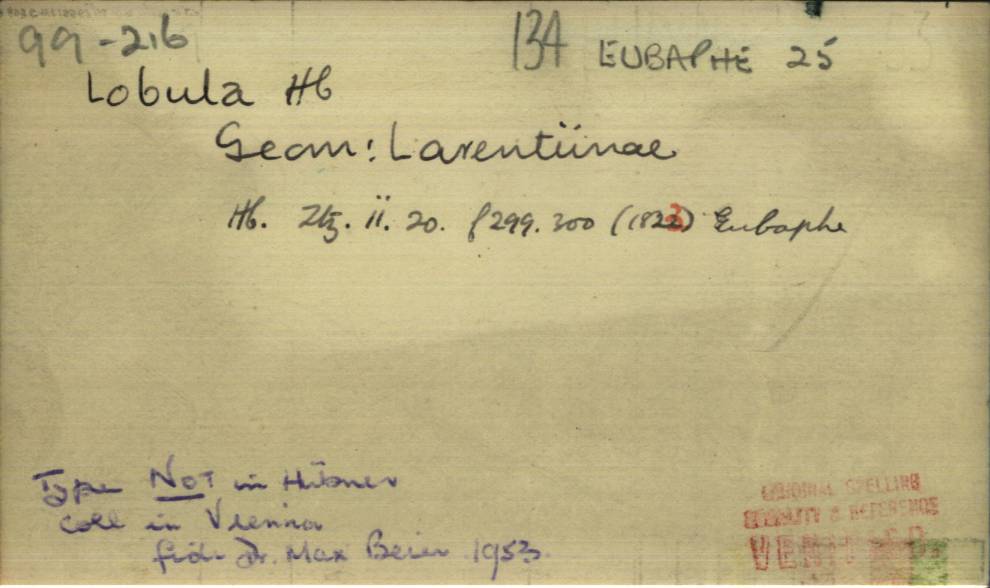 99-216 134 EUBAPHE 25
Lobula Hb
Geom: Larentiinae
Hb. Ztg. ii. 20. f 299. 300 (1823) Eubaphe
Type NOT in Hübner
coll in Vienna
fide Dr. Max Beier 1953.
ORIGINAL SPELLING
LOCALITY & REFERENCE
VERIFIED.